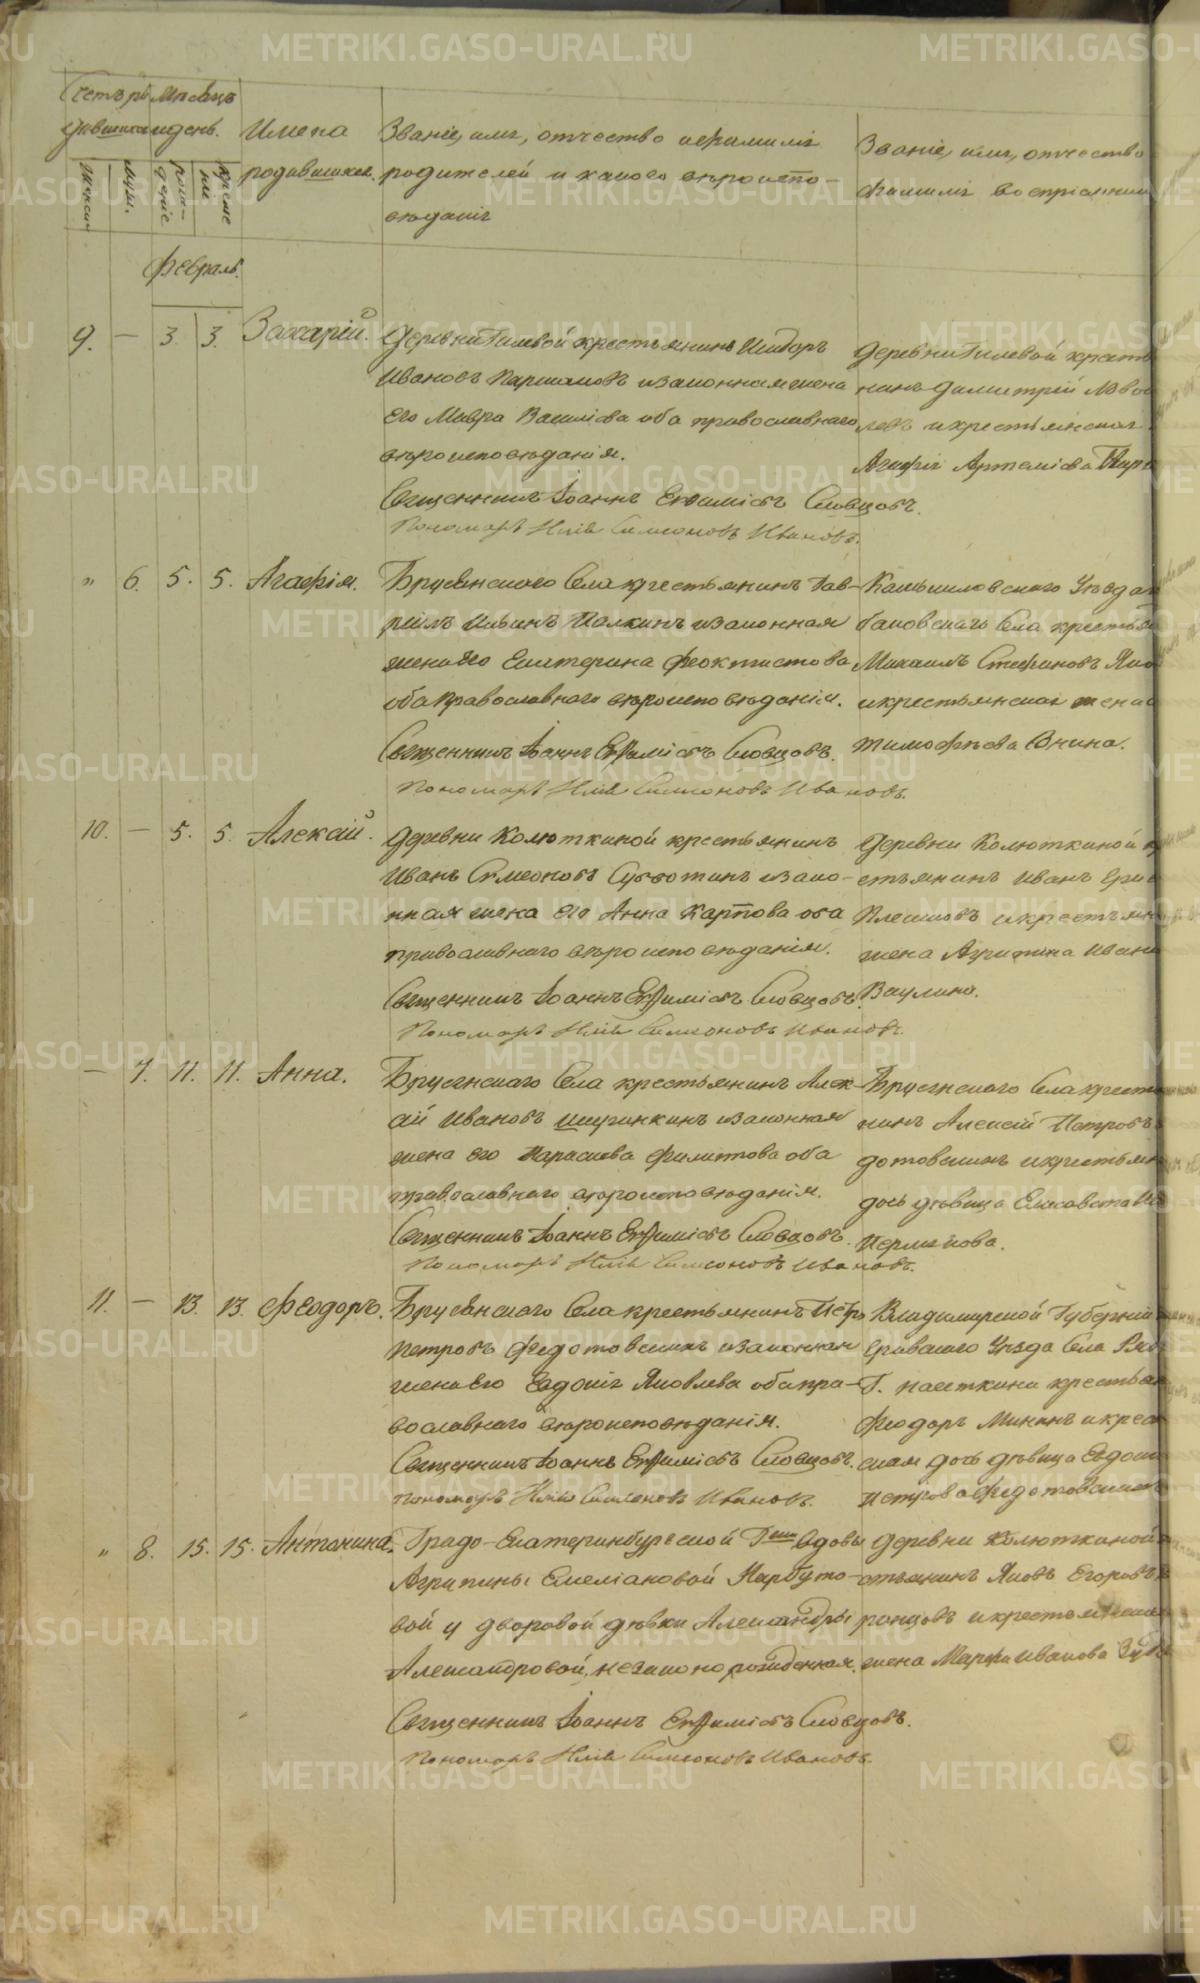 Счетъ ро Мѣсяцъ
дившихся и день.
Имена
родившихся.
Званіе, имя, отчество и фамилія
родителей и какого вѣроиспо-
вѣданія
Званіе, имя, отчество
фамилія воспріемник
Февраль.
9. — 3. 3. Захарій.
деревни Гилевой крестьянинъ
Ивановъ и законная жена
его Мавра Василіева оба православнаго
вѣроисповѣданія.
Священникъ Іоаннъ Евфиміевъ Словцовъ.
Пономарь Илія Симеоновъ Ивановъ.
деревни Гилевой кресть
нинъ Димитрій
и крестьянская
Артеміева
" 6. 5. 5. Агафія.
Брусянскаго Села крестьянинъ Гав-
ріилъ Ильинъ и законная
жена его Екатерина Феоктистова
оба православнаго вѣроисповѣданія.
Священникъ Іоаннъ Евфиміевъ Словцовъ.
Пономарь Илія Симеоновъ Ивановъ.
Камышловскаго Уѣзда
Села крестья
Михаилъ Стефановъ
и крестьянская жена
Тимофѣева
10. — 5. 5. Алексій.
деревни Колюткиной крестьянинъ
Иванъ Симеоновъ Субботинъ и зако-
нная жена его Анна Карпова оба
православнаго вѣроисповѣданія.
Священникъ Іоаннъ Евфиміевъ Словцовъ.
Пономарь Илія Симеоновъ Ивановъ.
деревни Колюткиной к
естьянинъ Иванъ
и крестьян
жена Агрипина Ивано
Ваулина.
— 7. 11. 11. Анна.
Брусянскаго Села крестьянинъ Алек-
сій Ивановъ и законная
жена его Параскева Филиппова оба
православнаго вѣроисповѣданія.
Священникъ Іоаннъ Евфиміевъ Словцовъ.
Пономарь Илія Симеоновъ Ивановъ.
Брусянскаго Села кресть
нинъ Алексій Петровъ
дотовскихъ и крестьян
дочь дѣвица Елисавета
Пермякова.
11. — 13. 13. Феодоръ.
Брусянскаго Села крестьянинъ Петръ
Петровъ Федотовскихъ и законная
жена его Евдокія Яковлева оба пра-
вославнаго вѣроисповѣданія.
Священникъ Іоаннъ Евфиміевъ Словцовъ.
Пономарь Илія Симеоновъ Ивановъ.
Владимирской Губерніи
Уѣзда Села
Г. крестьян
Феодоръ Мининъ и крес
ская дочь дѣвица Евдок
Петрова Федотовскихъ
" 8. 15. 15. Антонина.
Градо-Екатеринбургской Г вдовы
Агрипины Емеліановой Нарбуто-
вой у дворовой дѣвки Александры
Александровой, незаконорожденная.
Священникъ Іоаннъ Евфиміевъ Словцовъ.
Пономарь Илія Симеоновъ Ивановъ.
деревни Колюткиной
стьянинъ Яковъ Егоровъ
и крестьянская
жена Марфа Иванова
METRIKI.GASO-URAL.RU